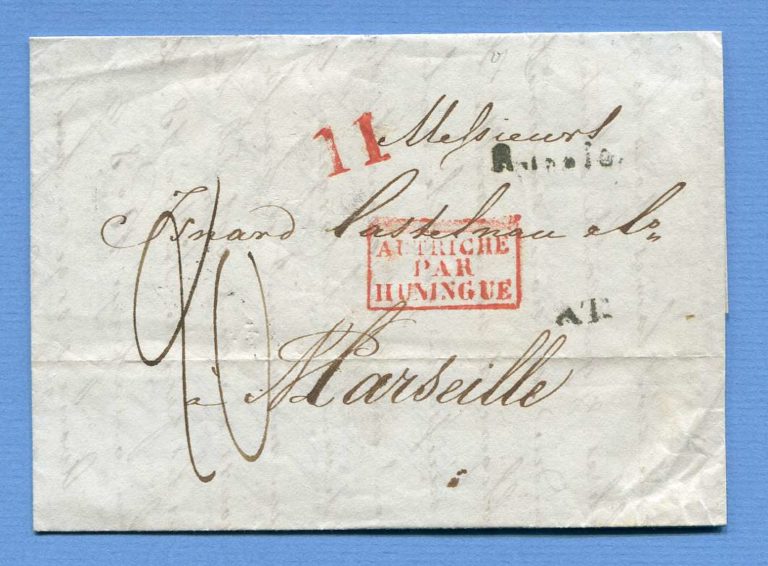 11
Messieurs
Russie.
Isnard Castelnau & Co
AUTRICHE
PAR
HUNINGUE
AT.
à Marseille